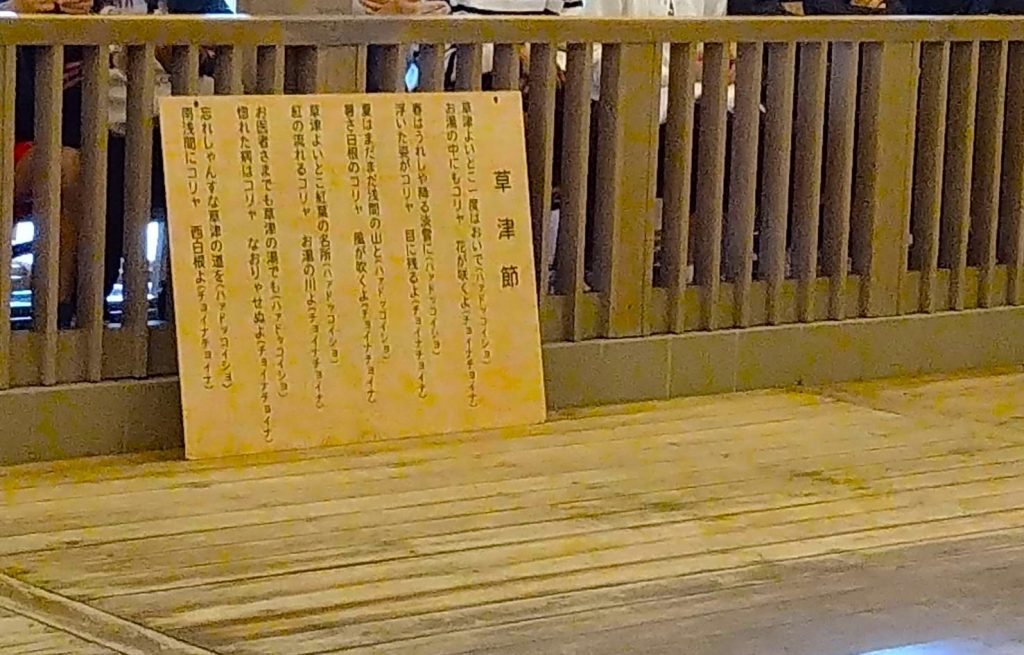 草津節
草津よいとこ一度はおいで(ハァドッコイショ)
お湯の中にもコリャ 花が咲くよ(チョイナチョイナ)
春はうれしや降る淡雪に(ハァドッコイショ)
浮いた姿がコリャ 目に残るよ(チョイナチョイナ)
夏はまだまだ浅間の山と(ハァドッコイショ)
暑さ白根のコリャ 風が吹くよ(チョイナチョイナ)
草津よいとこ紅葉の名所(ハァドッコイショ)
紅の流れるコリャ お湯の川よ(チョイナチョイナ)
お医者さまでも草津の湯でも(ハァドッコイショ)
惚れた病はコリャ なおりゃせぬよ(チョイナチョイナ)
忘れしゃんすな草津の道を(ハァドッコイショ)
南浅間にコリャ 西白根よ(チョイナチョイナ)